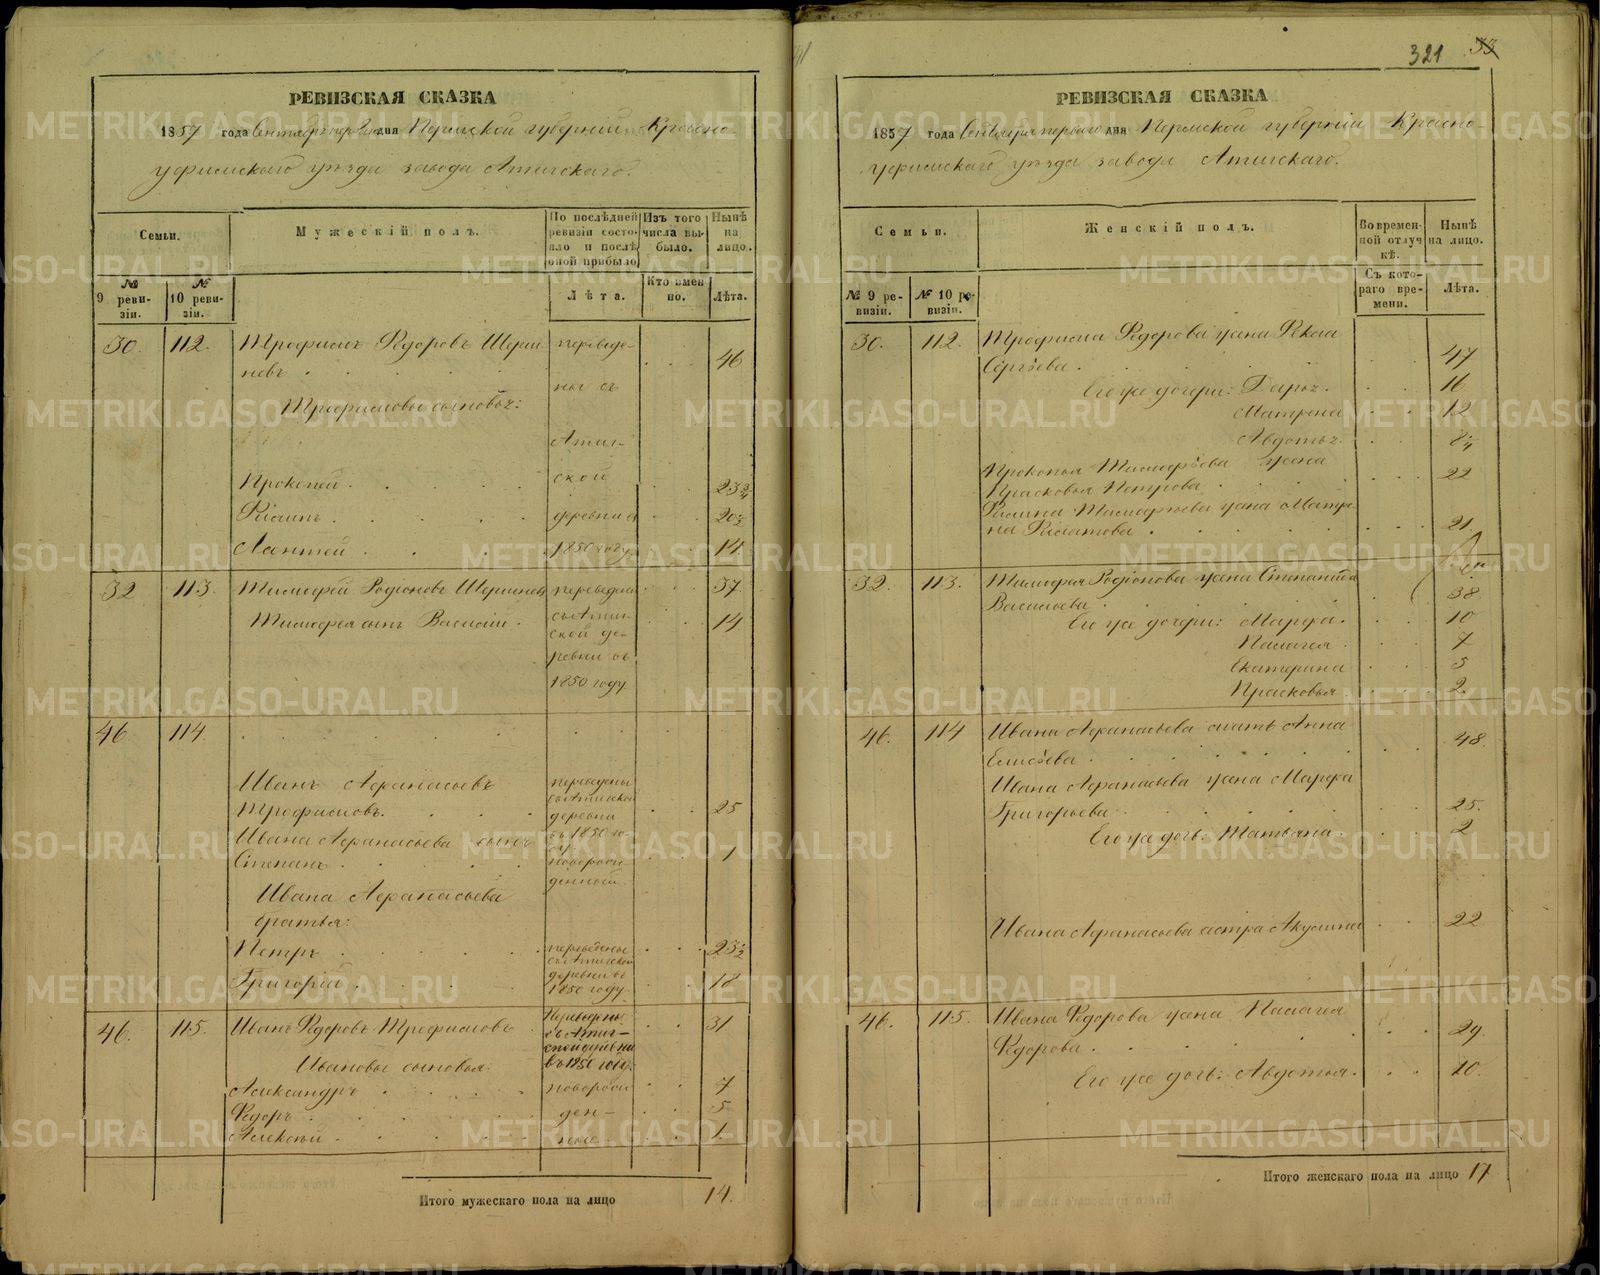 321 33
РЕВИЗСКАЯ СКАЗКА
1857 года Сентября первого дня Пермской губернии Красно-
уфимского уезда завода Атигскаго.
Семьи.
Мужескій полъ.
По послѣдней ревизіи состояло и послѣ оной прибыло.
Изъ того числа выбыло.
Нынѣ на лицо.
№ 9 ревизіи.
№ 10 ревизіи.
Лѣта.
Кто именно.
Лѣта.
30. 112. Трофимъ Ѳедоровъ переведе- 46
Трофимовы сыновья: ны съ
Атиг-
Прокопей ской 23
Филипъ деревни 20
14
въ 1850 году
32 113. Тимофей Родіоновъ переведены 37
Тимофея сынъ Василій съ Атиг- 14
ской де-
ревни въ
1850 году
46 114.
Иванъ Афанасьевъ переведены
съ Атигской
Трофимовъ. деревни 25
Ивана Афанасьева сынъ въ 1850 го-
Степанъ новорож- 1
денный
Ивана Афанасьева
братья:
Петръ переведены 23
съ Атигской
Григорій деревни въ 18
1850 году.
46. 115. Иванъ Ѳедоровъ Трофимовъ Переведены 31
съ Атиг-
ской деревни
Ивановы сыновья: въ 1850 году.
Александръ новорож- 7
Ѳедоръ ден- 5
Алексѣй ные 1.
Итого мужескаго пола на лицо 14.
РЕВИЗСКАЯ СКАЗКА
1857 года Сентября первого дня Пермской губерніи Красно-
уфимскаго уезда завода Атигскаго.
Семьи.
Женскій полъ.
Во временной отлучкѣ.
Нынѣ на лицо.
№ 9 ревизіи.
№ 10 ревизіи.
Съ котораго времени.
Лѣта.
30. 112. Трофима Ѳедорова жена Фекла
Сергѣева. 47
Его же дочери: Дарья. 16
Матрена 12
Авдотья.
Прокопья жена
Прасковья Петрова 22
жена Матре-
на Филатова 21
32. 113. Тимофея Родіонова жена Степанида
Васильева 38
Его же дочери: Марфа. 10
Палагея 7
Екатерина 5
Прасковья 2.
46. 114 Ивана Афанасьева мать Анна
Елисѣева 48.
Ивана Афанасьева жена Марфа
Григорьева 25.
Его же дочь: Татьяна. 2
Ивана Афанасьева сестра Акулина 22
46. 115. Ивана Ѳедорова жена Палагея
Ѳедорова 29.
Его же дочь: Авдотья. 10.
Итого женскаго пола на лицо 17
METRIKI.GASO-URAL.RU